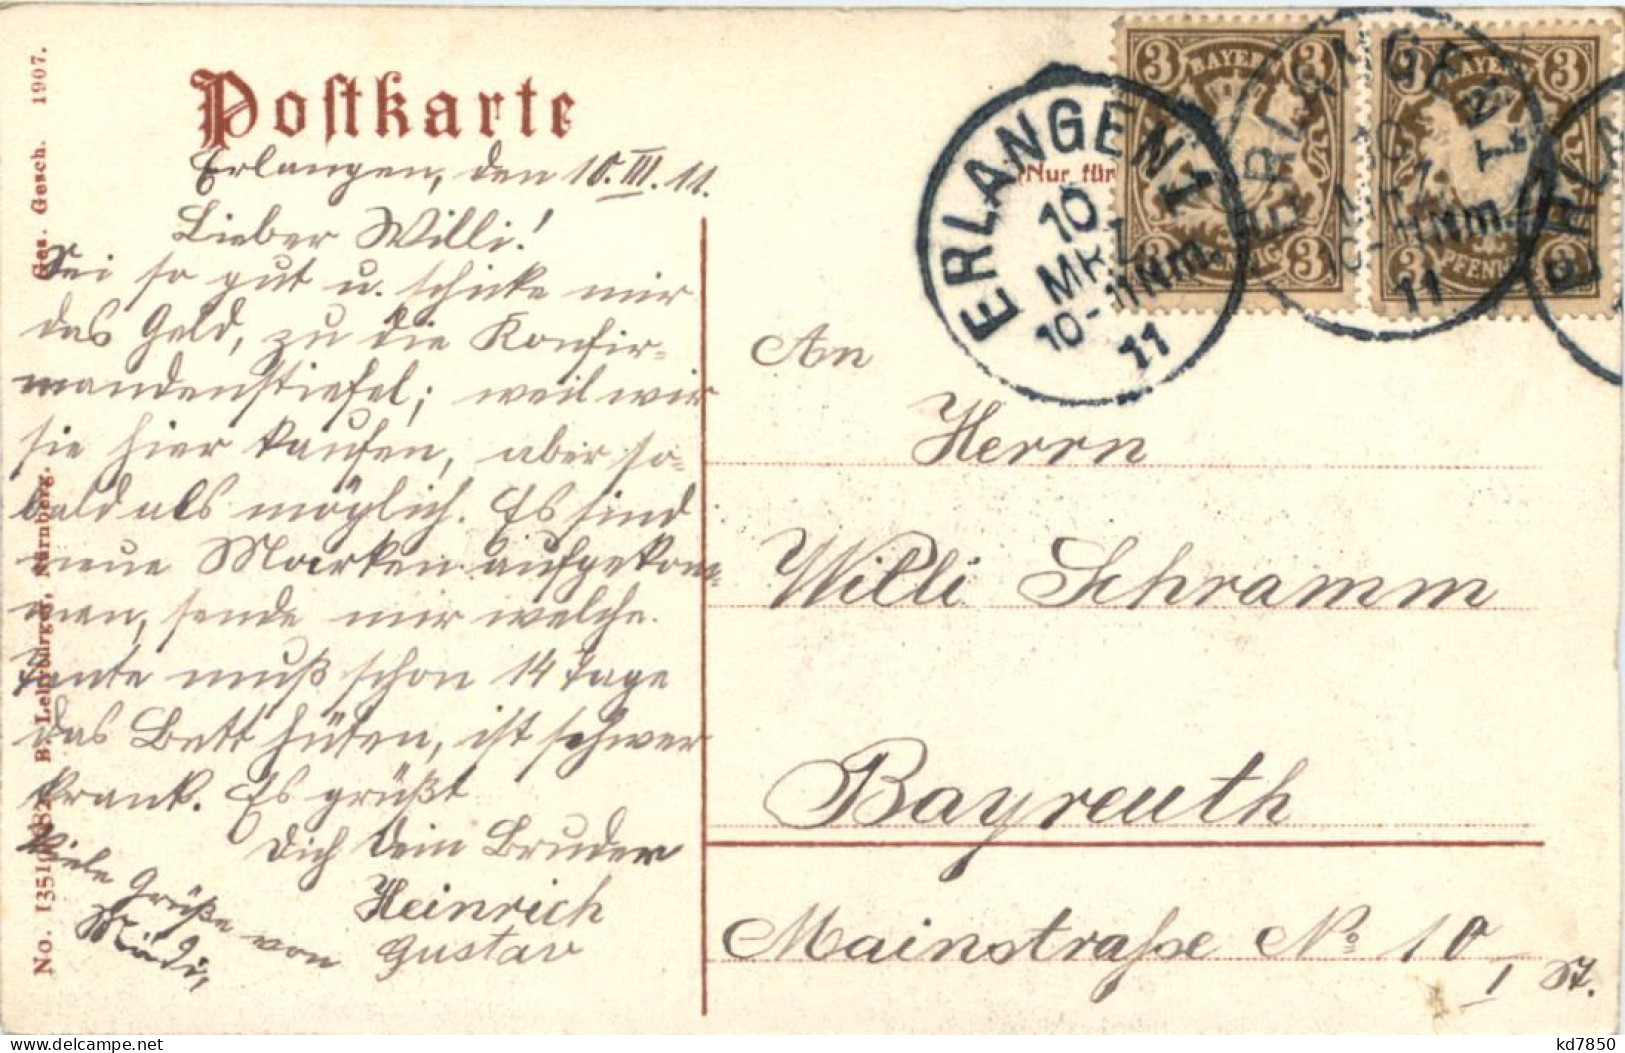 Postkarte
(Nur für
Erlangen, den 10. III. 11.
Lieber Willi!
Sei so gut u. schicke mir
das Geld, zu die Konfir-
mandenstiefel; weil wir
sie hier kaufen, aber so-
bald als möglich. Es sind
neue Marken aufgekom-
men, sende mir welche.
Tante muß schon 14 Tage
das Bett hüten, ist schwer
krank. Es grüßt
Dich Dein Bruder
Heinrich
Gustav
Viele Grüße von
An
Herrn
Willi Schramm
Bayreuth
Mainstraße No 10
I St.
BAYERN
3 3
3 3
PFENNIG
BAYERN
3 3
3 3
PFENNIG
ERLANGEN 1
10
MRZ
10-11 Nm.
11
ERLANGEN 1
10
MRZ
10-11 Nm.
11
ERLA
B. Lehrburger, Nürnberg.
Ges. Gesch. 1907.
kd7850